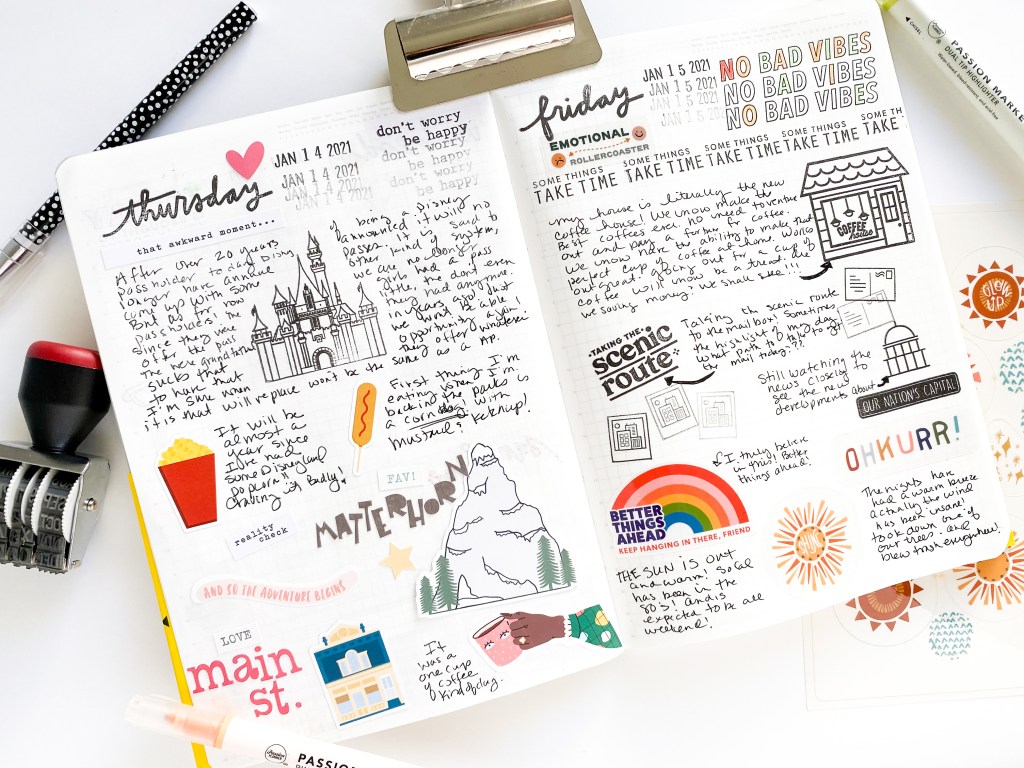 JAN 1 4 2021
JAN 1 4 2021
JAN 1 4 2021
don't worry
be happy
don't worry
be happy
don't worry
be happy
thursday
that awkward moment...
After over 20 years
pass holder today
longer have annual
come up with some
But for now
passholders. The
since they were
offer the pass
sucks that
to use when
I'm sure when
it is that will replace won't be the same as a AP.
being a Disney
announced it will no
passes. It is said to
other kind of system,
we are no longer
girls had a pass
little, the don't even
they had anymore.
years ago! Just
we wont be able
opportunity again
they offer whatever
It will be
almost a
year since
I've had
some Disneyland
popcorn!!
craving it badly!
First thing I'm
eating when I'm
back in the parks is
a corn dog with
mustard & ketchup!
FAV!
MATTERHORN
reality
check
AND SO THE ADVENTURE BEGINS
LOVE
main
st.
It
was a
one cup
of coffee
kind of day.
friday
JAN 1 5 2021
JAN 1 5 2021
JAN 1 5 2021
NO BAD VIBES
NO BAD VIBES
NO BAD VIBES
EMOTIONAL
ROLLERCOASTER
SOME THINGS
TAKE TIME
SOME THINGS
TAKE TIME
SOME THINGS
TAKE TIME
SOME THINGS
TAKE TIME
SOME TH
TAKE
my house is literally the new
coffee house! We know make the
Best coffees ever no need to venture
out and pay a fortune for coffee.
We know have the ability to make that
perfect cup of coffee at home. Works
out great going out for a cup of
coffee will know be a trend. Are
we saving money? We shall see!!!
COFFEE
dates
TAKING THE
scenic
route
Taking the scenic route
to the mail box. Sometimes
the highlight of my day
What park to take
the mail today??
Still watching the
news closely to
see the new
developments about
OUR NATION'S CAPITAL
I truly believe
in this! Better
things ahead!
OHKURR!
BETTER
THINGS
AHEAD
KEEP HANGING IN THERE, FRIEND
THE SUN IS OUT
and warm! SoCal
has been in the
80's! And is
expected to be all
weekend!
The nights have
had a warm breeze
actually the wind
has been insane!
took down one of
our trees and
blew trash everywhere!
GLOW
UP
CHISEL
PASSION MARKE
DUAL TIP HIGHLIGHTER
PASSION